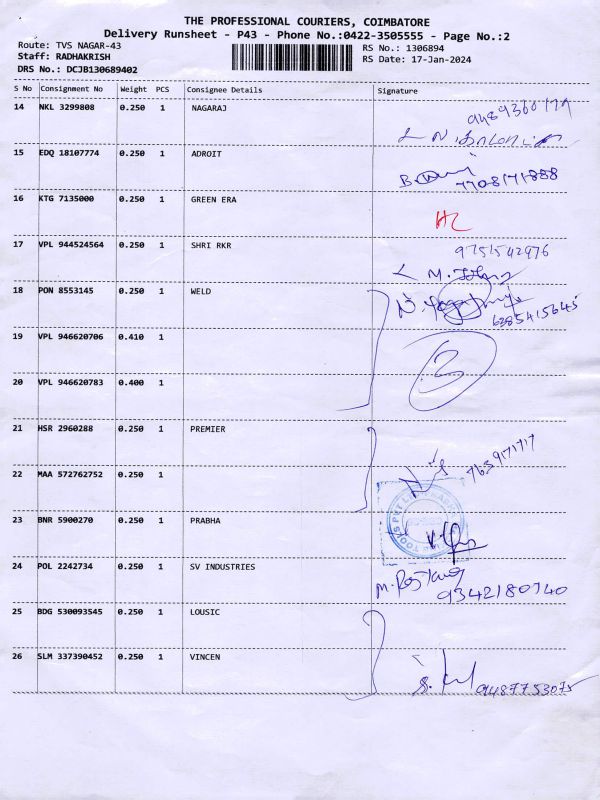 THE PROFESSIONAL COURIERS, COIMBATORE
Delivery Runsheet - P43 - Phone No.:0422-3505555 - Page No.:2
Route: TVS NAGAR-43 RS No.: 1306894
Staff: RADHAKRISH RS Date: 17-Jan-2024
DRS No.: DCJB130689402
S No Consignment No Weight PCS Consignee Details Signature
14 NKL 3299808 0.250 1 NAGARAJ
15 EDQ 18107774 0.250 1 ADROIT
7708171888
16 KTG 7135000 0.250 1 GREEN ERA
17 VPL 944524564 0.250 1 SHRI RKR 9751542976
18 PON 8553145 0.250 1 WELD
6385415645
19 VPL 946620706 0.410 1
3
20 VPL 946620783 0.400 1
21 HSR 2960288 0.250 1 PREMIER
22 MAA 572762752 0.250 1
23 BNR 5900270 0.250 1 PRABHA
24 POL 2242734 0.250 1 SV INDUSTRIES
9342180740
25 BDG 530093545 0.250 1 LOUSIC
26 SLM 337390452 0.250 1 VINCEN
9487753075